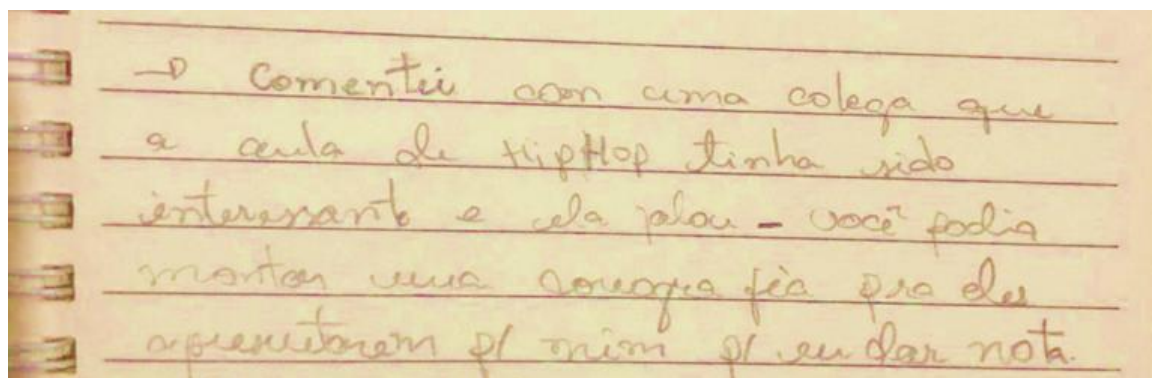 → Comentei com uma colega que
a aula de HipHop tinha sido
interessante e ela falou - você podia
montar uma coreografia pra eles
apresentarem p/ mim p/ eu dar nota.